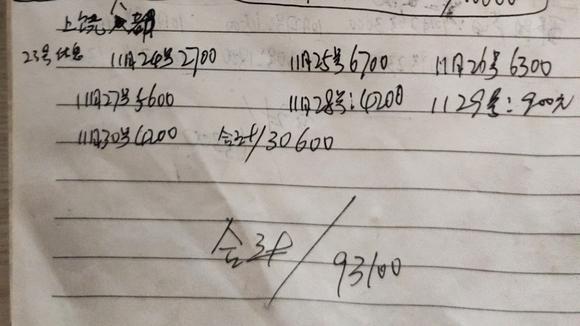 上饶八部
23号休息 11月24号2700 11月25号6700 11月26号6300
11月27号5600 11月28号:4200 1129号:900元
11月30号4200 合计/30600
合计/93100